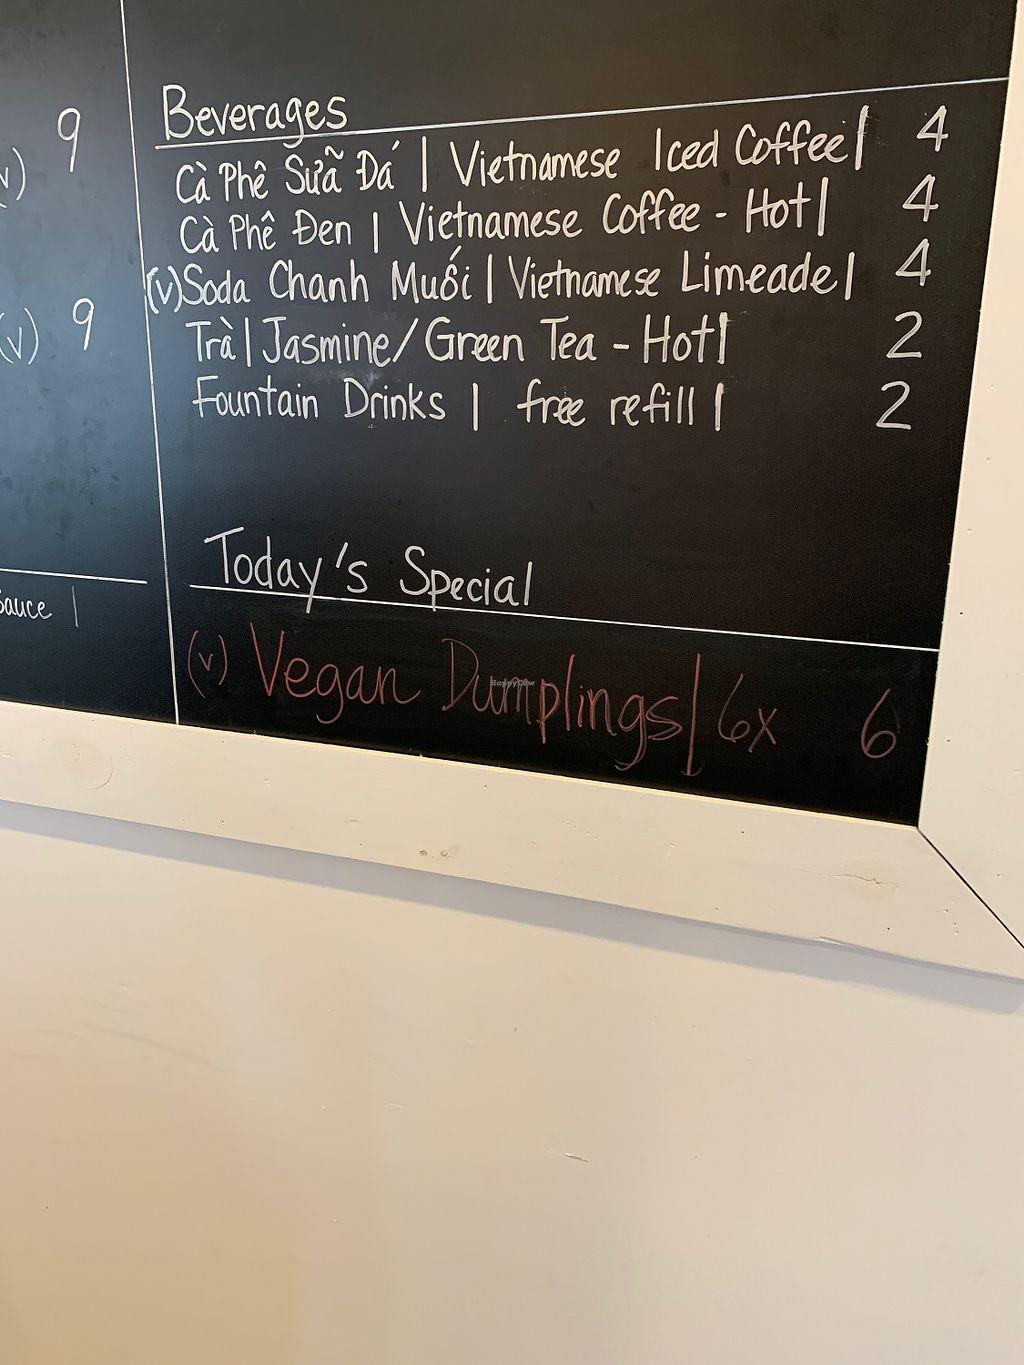 9
(v)
(v) 9
Sauce |
Beverages
Cà Phê Sữã Đá | Vietnamese Iced Coffee| 4
Cà Phê Đen | Vietnamese Coffee - Hot| 4
(v) Soda Chanh Muối | Vietnamese Limeade| 4
Trà | Jasmine/Green Tea - Hot| 2
Fountain Drinks | free refill | 2
Today's Special
(v) Vegan Dumplings | 6x 6
HappyCow